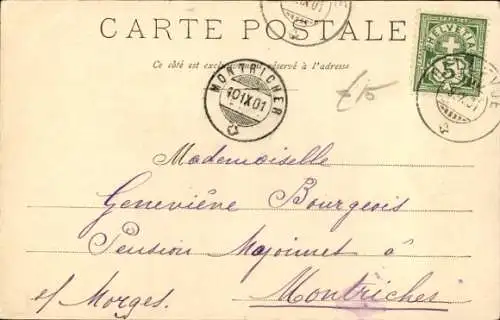 CARTE POSTALE
Ce côté est exclusivement réservé à l'adresse
HELVETIA
5
MONTRICHER
10 IX 01
£15
Mademoiselle
Geneviève Bourgeois
Pension Majonnet à
s/ Morges. Montricher